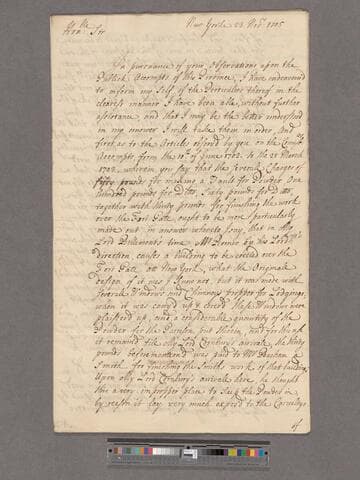 New Yorke 23 Nov.r 1705
Hon.ble Sir
In pursuance of your Observations upon the
Publick Accompts of this Province, I have endeavoured
to inform my Self of the Perticulers thereof in the
clearest manner I have been able, without further
assistance, and that I may be the better understood
in my answer I will take them in order, And
first as to the Articles offered by you on the
Accompts, from the 18.th of June 1702. to the 25 March
1703. wherein you say that the severall Charges of
fifty pounds for makeing a Vault for Powder, One
hundred pounds for Ditto, sixty pounds for Ditto,
together with thirty pounds for finishing the work
over the Fort Gate, ought to be more perticularly
made out, in answer whereto I say, that in My
Lord Bellemonts time M.r by his Lord.pps
direction, caus'd a building to be erected over the
Fort Gate att New Yorke, what the Originale
design of it was I know not, but it was made with
severall Windows and Chimneys propper for Lodgeings,
when it was comp those Windows were
plaister'd up, and a considerable quantity of the
Powder for the Garrison put therein, and
it remain'd till My Lord Cornbury's arrivale, the thirty
pounds beforementiond was paid to M.r a
Smith for finishing the Smiths work of that building
Upon My Lord Cornbury's arrivale here, he thought
this a very improper place to the Powder in
by reason it lay very much expos'd to the Casualtys
of